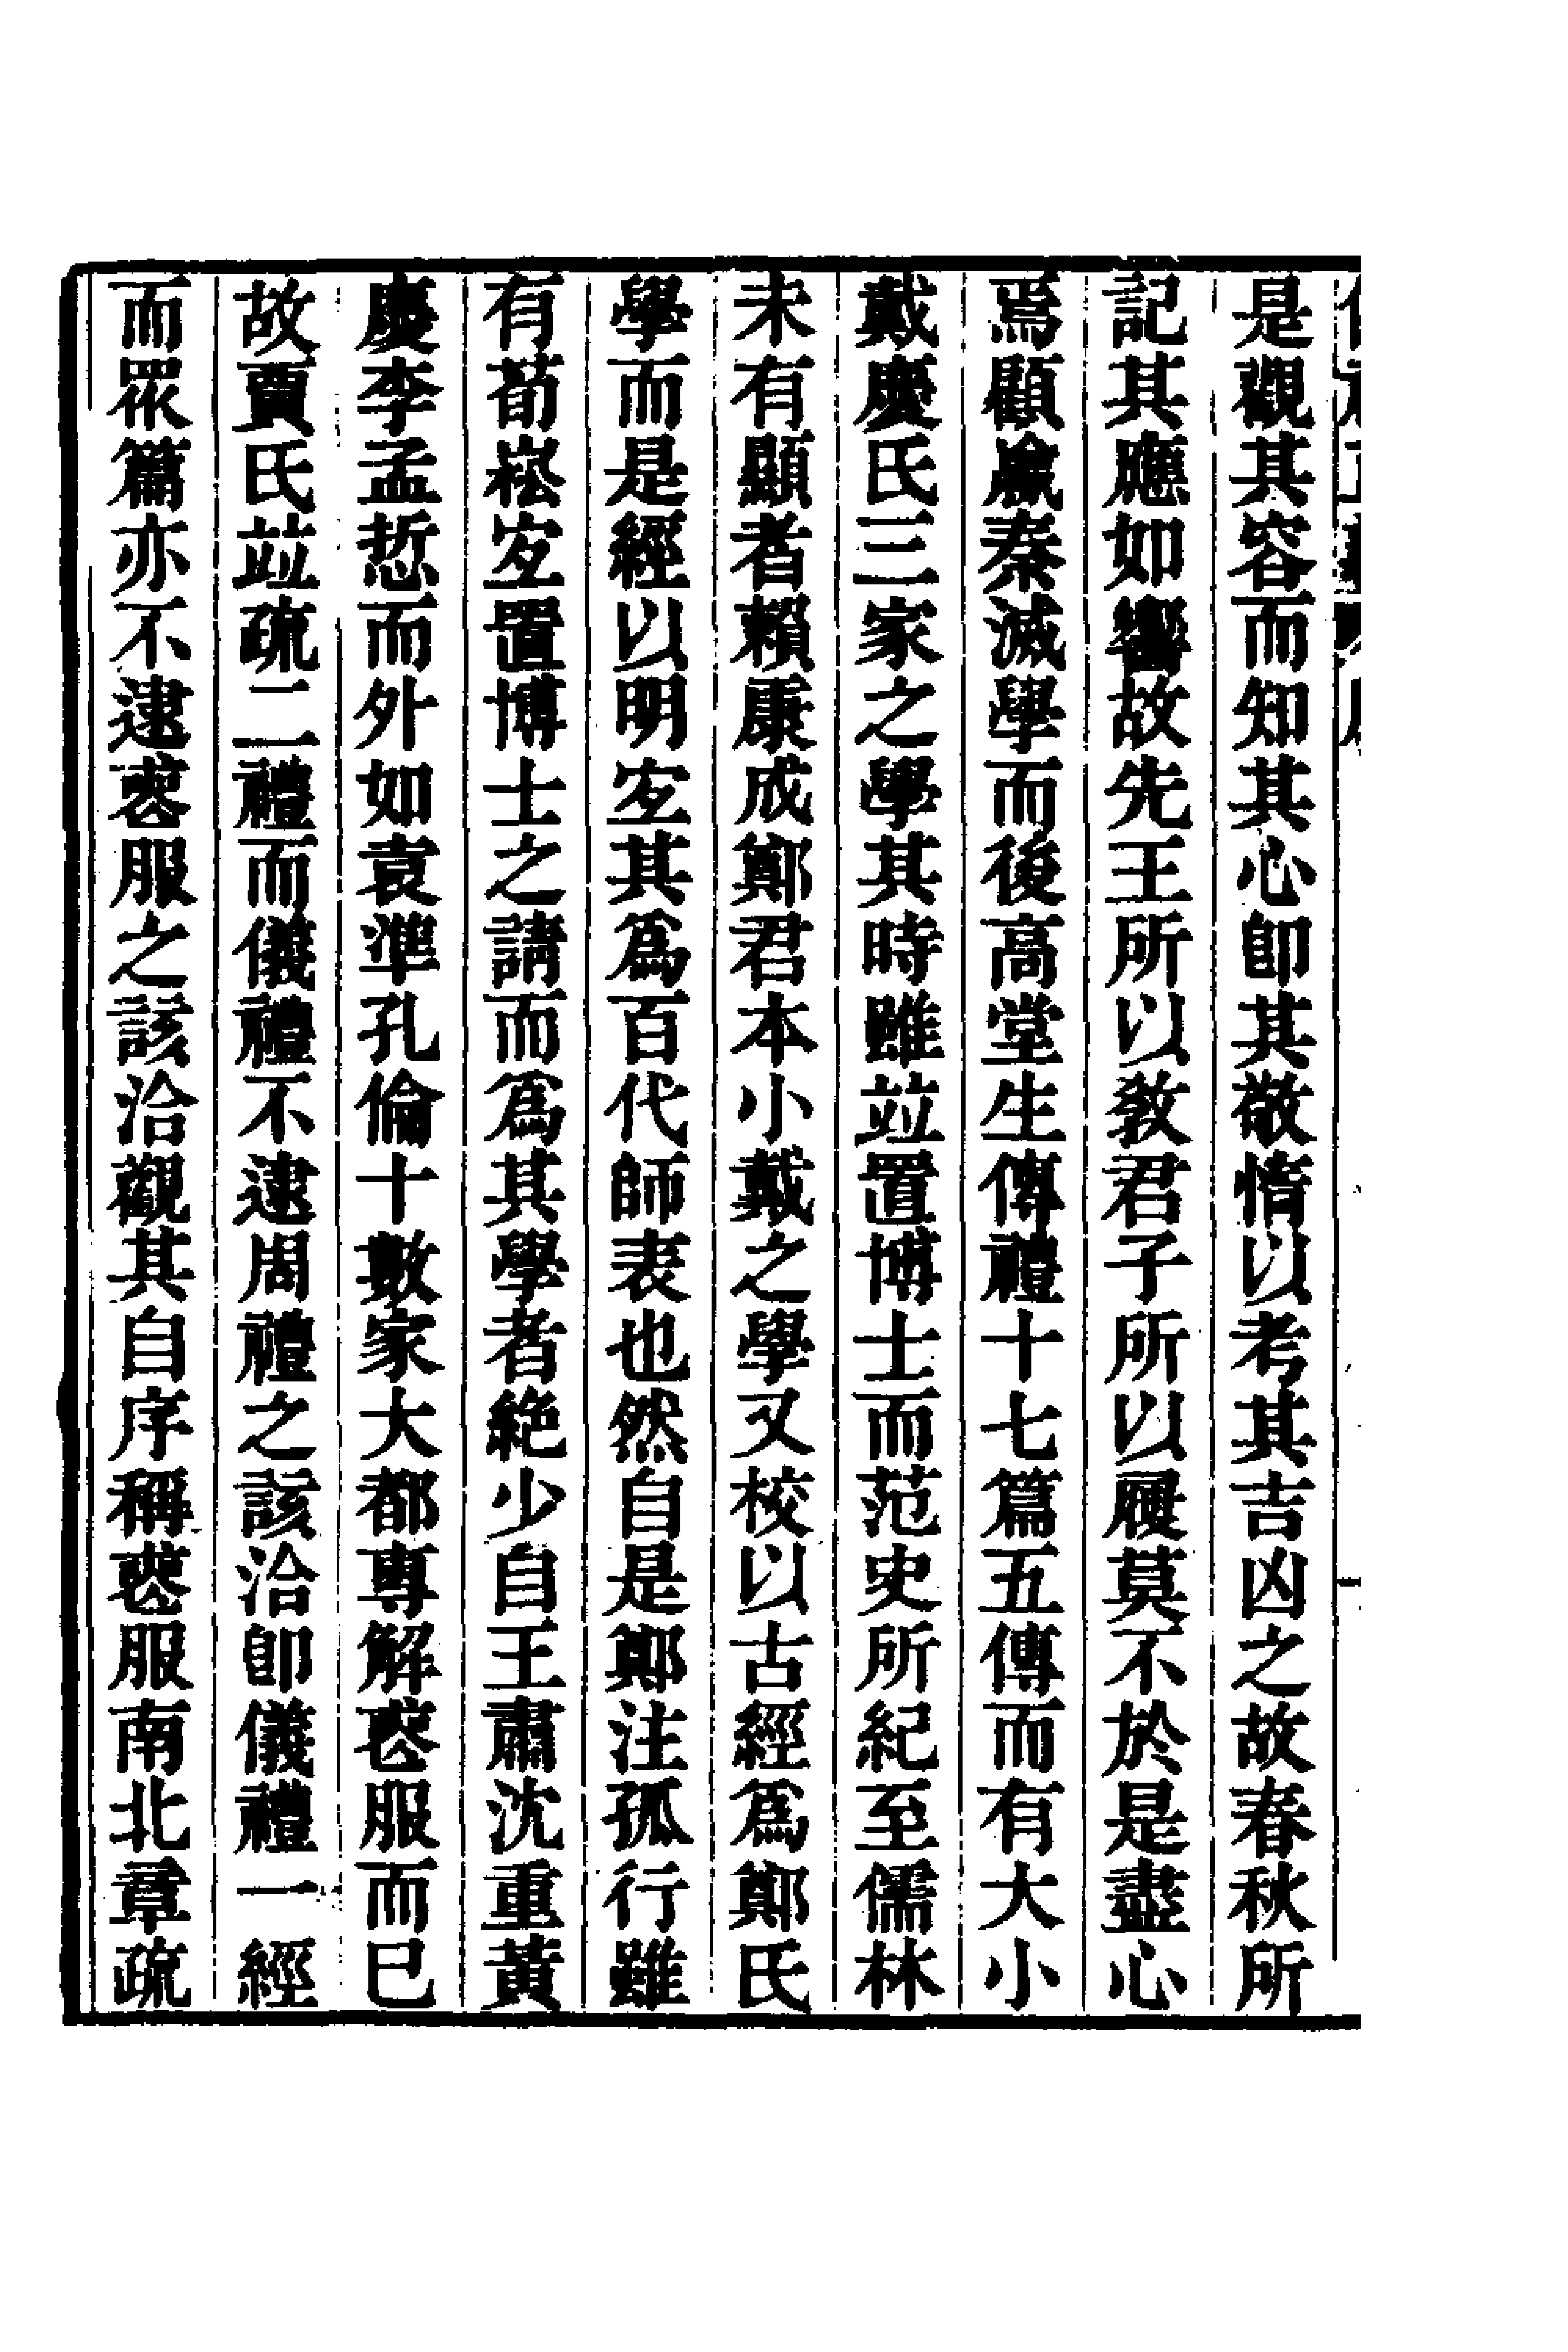 是觀其容而知其心卽其敬惰以考其吉凶之故春秋所
記其應如響故先王所以敎君子所以履莫不於是盡心
焉顧嬴秦滅學而後高堂生傳禮十七篇五傳而有大小
戴慶氏三家之學其時雖竝置博士而范史所紀至儒林
未有顯者賴康成鄭君本小戴之學又校以古經爲鄭氏
學而是經以明定其爲百代師表也然自是鄭注孤行雖
有荀崧定置博士之請而爲其學者絶少自王肅沈重黃
慶李孟悊而外如袁準孔倫十數家大都專解喪服而已
故賈氏竝疏二禮而儀禮不逮周禮之該洽卽儀禮一經
而眾篇亦不逮喪服之該洽觀其自序稱喪服南北章疏